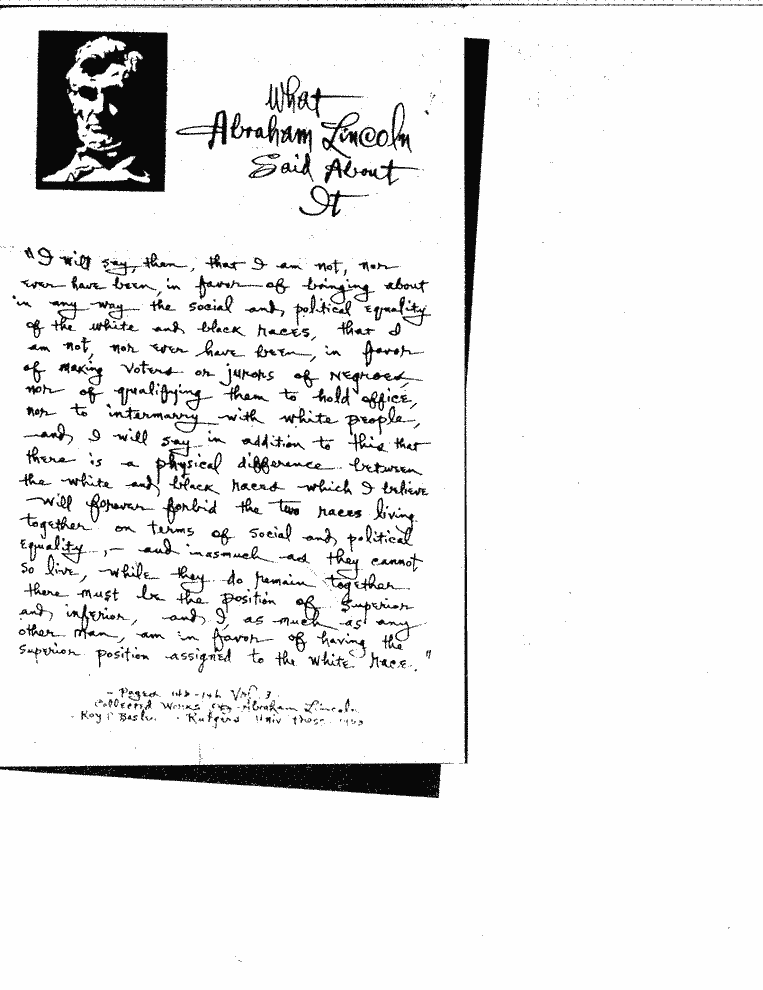 What
Abraham Lincoln
Said About
It
"I will say, then, that I am not, nor
ever have been, in favor of bringing about
in any way the social and political equality
of the white and black races, that I
am not, nor ever have been, in favor
of making voters or jurors of Negroes,
nor of qualifying them to hold office,
nor to intermarry with white people,
and I will say in addition to this that
there is a physical difference between
the white and black races which I believe
will forever forbid the two races living
together on terms of social and political
equality, – and inasmuch as they cannot
so live, while they do remain together
there must be the position of superior
and inferior, and I, as much as any
other man, am in favor of having the
superior position assigned to the white race."
– Pages Vol. 3
Collected Works Abraham Lincoln
Roy P Basler - Rutgers Univ Press